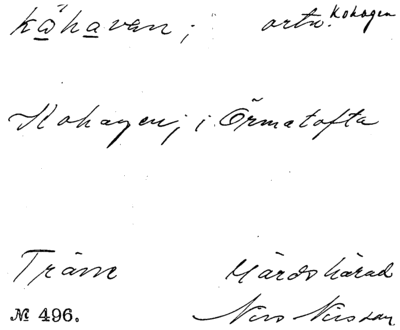 kähavan; ortn. Kohagen
Kohagen; i Örmatofta
Träne Gärds härad
№ 496. Nils Nilsson